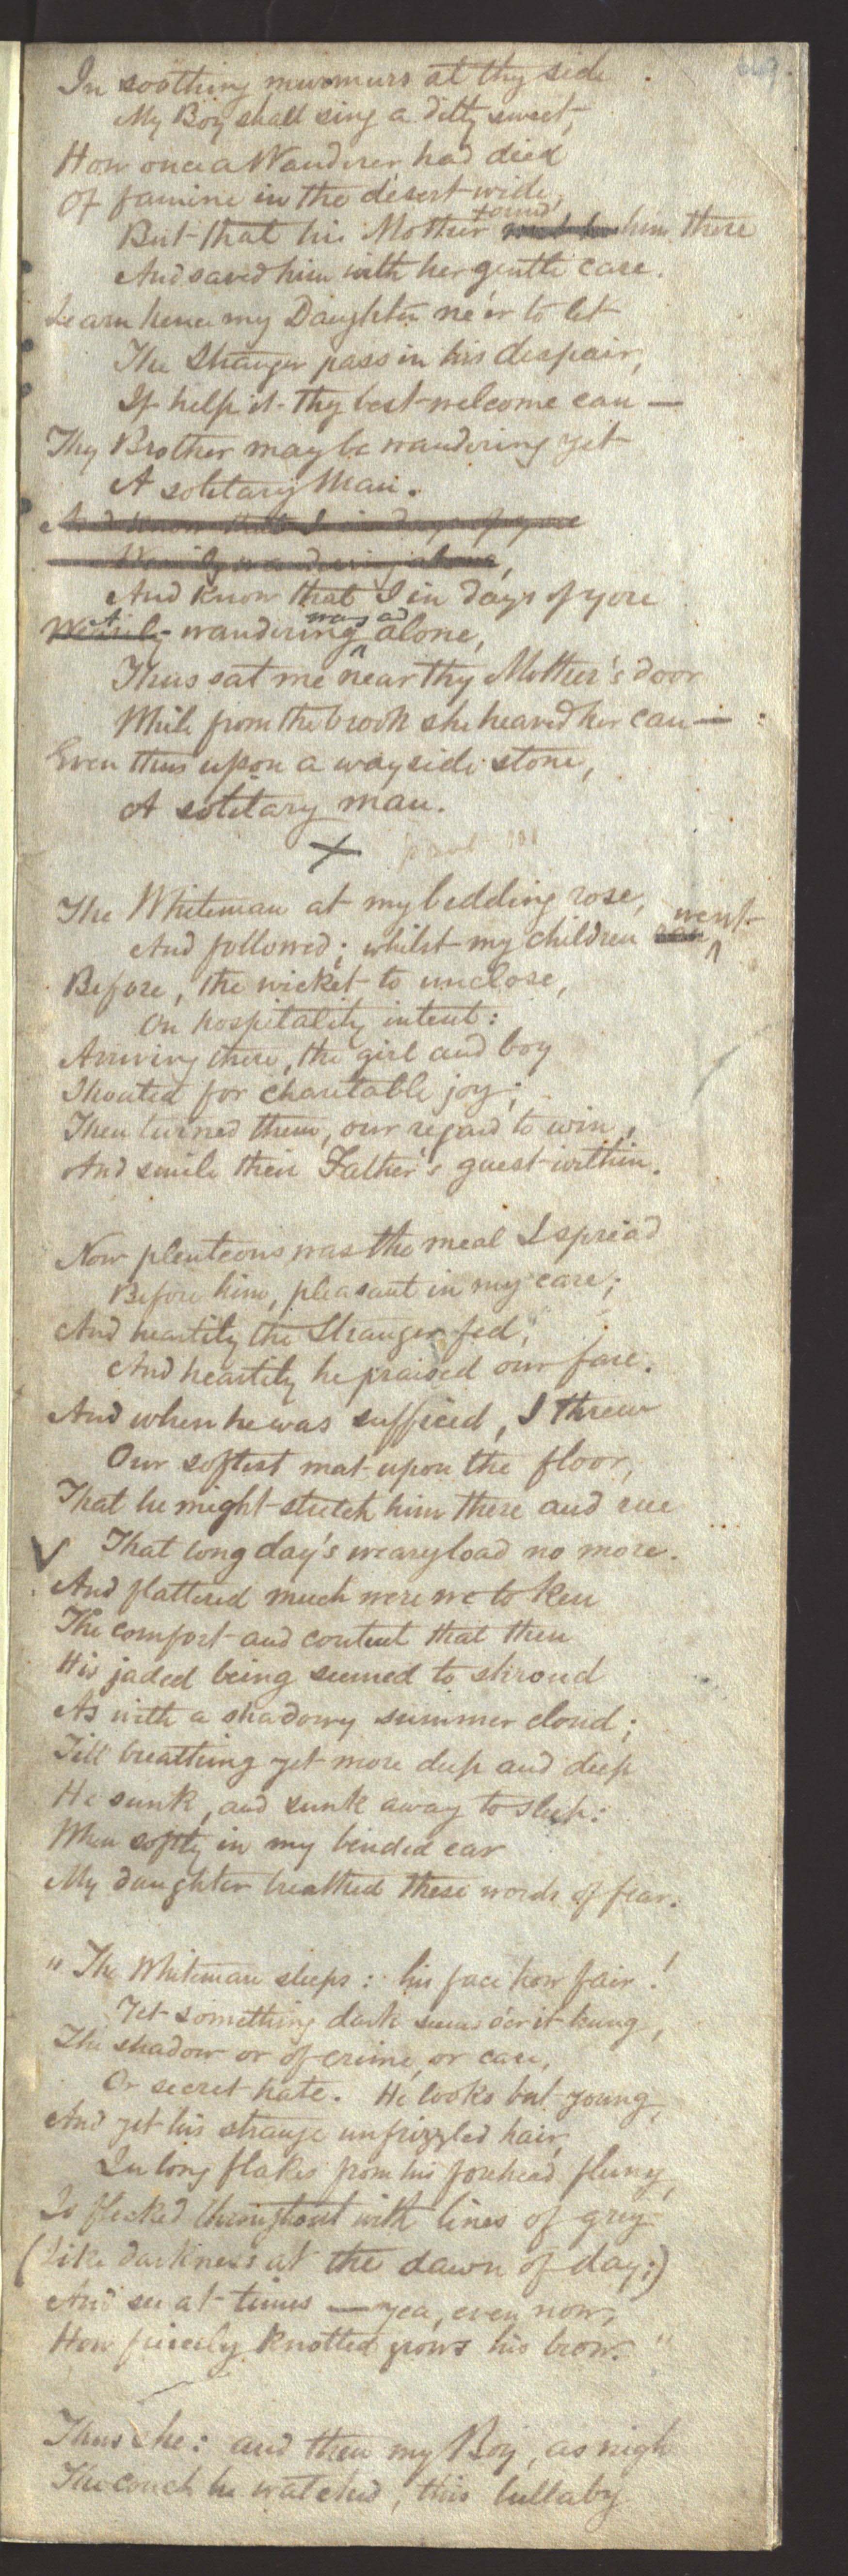 In soothing murmurs at thy side
My Boy shall sing a ditty sweet,
How once a Wanderer had died
Of famine in the desert wide,
But that his Mother found him there
And saved him with her gentle care.
Learn hence my Daughter ne'er to let
The Stranger pass in his despair,
If help it thy best welcome can —
Thy Brother may be wandering yet
A solitary Man.
And know that I in days of yore
Wearily wandering alone,
And know that I in days of yore
Wearily A wandering was ad alone,
Thus sat me near thy Mother's door
While from the brook she heaved her can —
Even thus upon a wayside stone,
A solitary man.
X
The Whiteman at my bedding rose,
And followed; whilst my children ran went
Before, the wicket to unclose,
On hospitality intent:
Arriving there, the girl and boy
Shouted for charitable joy;
Then turned them, our regard to win,
And smile their Father's guest within.
Now plenteous was the meal I spread
Before him, pleasant in my care;
And heartily the Stranger fed,
And heartily he praised our fare.
And when he was sufficed, I threw
Our softest mat upon the floor,
That he might stretch him there and rue
That long day's weary load no more.
And flattered much were we to ken
The comfort and content that then
His jaded being seemed to shroud
As with a shadowy summer cloud;
Till breathing yet more deep and deep
He sunk, and sunk away to sleep:
When softly in my bended ear
My daughter breathed these words of fear.
"The Whiteman sleeps: his face how fair!
Yet something dark seems o'er it hung,
The shadow or of crime, or care,
Or secret hate. He looks but young,
And yet his strange unfrizzled hair,
In long flakes from his forehead flung,
Is flecked throughout with lines of grey
(Like darkness at the dawn of day;)
And see at times — yea, even now,
How fiercely knotted grows his brow."
Thus she: and then my Boy, as nigh
The couch he watched, this lullaby